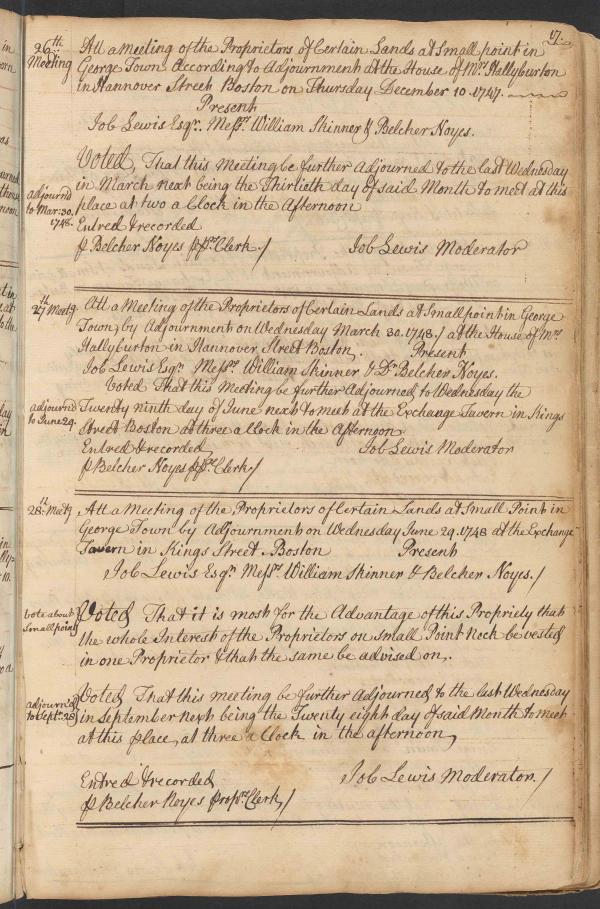 17.
26th Meeting
Att a Meeting of the Proprietors of Certain Lands at Small point in
George Town According to Adjournment at the House of Mrs. Hallyburton
in Hannover Street Boston on Thursday December 10. 1747.
Present
Job Lewis Esqr. Messrs. William Skinner & Belcher Noyes.
Voted, That this Meeting be further Adjourned to the last Wednesday
in March next being the Thirtieth day of said Month to meet at this
place at two a Clock in the Afternoon
adjournd
to Mar: 30.
1748.
Entred & recorded
p Belcher Noyes Clerk /
Job Lewis Moderator
27th Meetg
Att a Meeting of the Proprietors of Certain Lands at Small point in George
Town by Adjournment on Wednesday March 30. 1748. / at the House of Mrs.
Hallyburton in Hannover Street Boston. Present
Job Lewis Esqr. Messrs. William Skinner & Dr. Belcher Noyes.
Voted That this Meeting be further Adjourned to Wednesday the
Twenty ninth day of June next to meet at the Exchange Tavern in Kings
Street Boston at three a Clock in the Afternoon
adjournd
to June 29.
Entred & recorded
p Belcher Noyes Clerk /
Job Lewis Moderator
28th Meetg
Att a Meeting of the Proprietors of Certain Lands at Small Point in
George Town by Adjournment on Wednesday June 29. 1748 at the Exchange
Tavern in Kings Street Boston Present
Job Lewis Esqr. Messrs. William Skinner & Belcher Noyes. /
vote about
Small point
Voted That it is most for the Advantage of this Propriety that
the whole Interest of the Proprietors on Small Point Neck be vested
in one Proprietor & that the same be advised on.
adjourn'd
to Septr. 28
Voted That this meeting be further Adjourned to the last Wednesday
in September next being the Twenty eight day of said Month to meet
at this place, at three a Clock in the afternoon
Entred & recorded
p Belcher Noyes Proprs Clerk /
Job Lewis Moderator. /